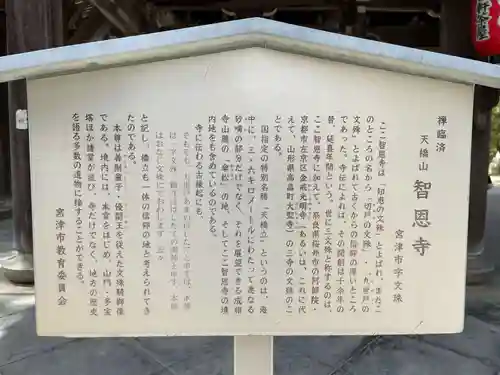 臨済禅
天橋山 智恩寺
宮津市字文珠
ここ智恩寺は「知恵の文殊」とよばれ、またこ
のところの名から「切戸の文殊」、「九世戸の
文殊」とよばれて古くからの信仰の厚いところ
であった。寺伝によれば、その開創は千余年の
昔、延喜年間という。世に三文殊と称するのは、
ここ智恩寺に加えて、奈良県桜井市の阿部院・
京都市左京区金戒光明寺（あるいは、これに代
えて、山形県高畠町大聖寺）の三寺の文殊のこ
とである。
国指定の特別名勝「天橋立」というのは、海
中に三・六キロメートルにわたって連なる
砂嘴の部分だけでなく、それを展望できる成相
寺山麓の「傘松」の地、そしてここ智恩寺の境
内地をも含めているのである。
寺に伝わる古縁起にも、
と記し、橋立も一体の信仰の地と考えられてき
たのである。
本尊は善財童子・優闐王を従えた文殊騎獅像
である。境内には、本堂をはじめ、山門・多宝
塔ほか諸堂が並び、寺だけでなく、地方の歴史
を語る多数の遺物に接することができる。
宮津市教育委員会